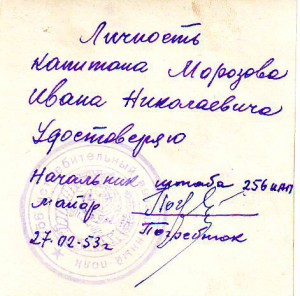 Личность
капитана Морозова
Ивана Николаевича
Удостоверяю
Начальник штаба 256 иап
майор
27.02-53г Погребток